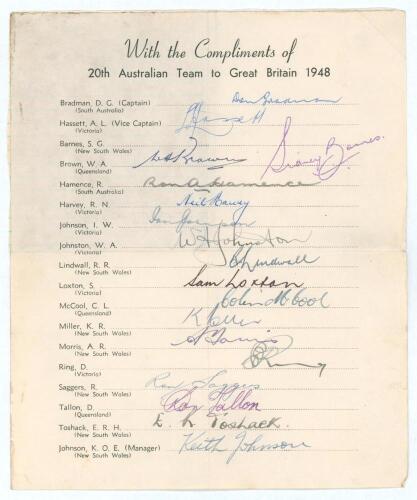 With the Compliments of
20th Australian Team to Great Britain 1948
Bradman, D. G. (Captain) Don Bradman
(South Australia)
Hassett, A. L. (Vice Captain) Hassett
(Victoria)
Barnes, S. G. Sidney Barnes.
(New South Wales)
Brown, W. A. W A Brown
(Queensland)
Hamence, R. Ron A Hamence
(South Australia)
Harvey, R. N. Neil Harvey
(Victoria)
Johnson, I. W. Ian Johnson
(Victoria)
Johnston, W. A. W A Johnston
(Victoria)
Lindwall, R. R. Lindwall
(New South Wales)
Loxton, S. Sam Loxton
(Victoria)
McCool, C. L. Colin McCool
(Queensland)
Miller, K. R. K Miller
(New South Wales)
Morris, A. R. A Morris
(New South Wales)
Ring, D. Ring
(Victoria)
Saggers, R. Ron Saggers
(New South Wales)
Tallon, D. Don Tallon
(Queensland)
Toshack, E. R. H. E. R Toshack.
(New South Wales)
Johnson, K. O. E. (Manager) Keith Johnson
(New South Wales)